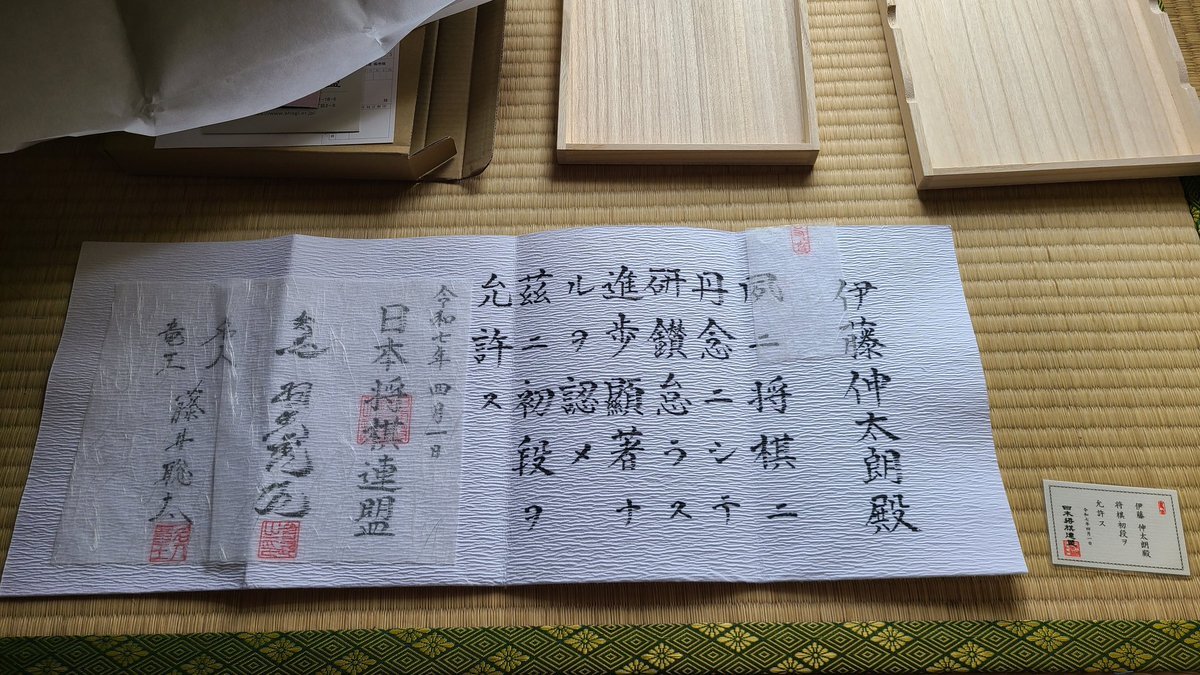 伊藤伸太朗殿
夙ニ将棋ニ
丹念ニシテ
研鑽怠ラス
進歩顯著ナ
ルヲ認メ
茲ニ初段ヲ
允許ス
令和七年四月一日
日本将棋連盟
会長 羽生善治
名人
竜王 藤井聡太
伊藤 伸太朗殿
将棋 初段ヲ
允許ス
令和七年四月一日
日本将棋連盟